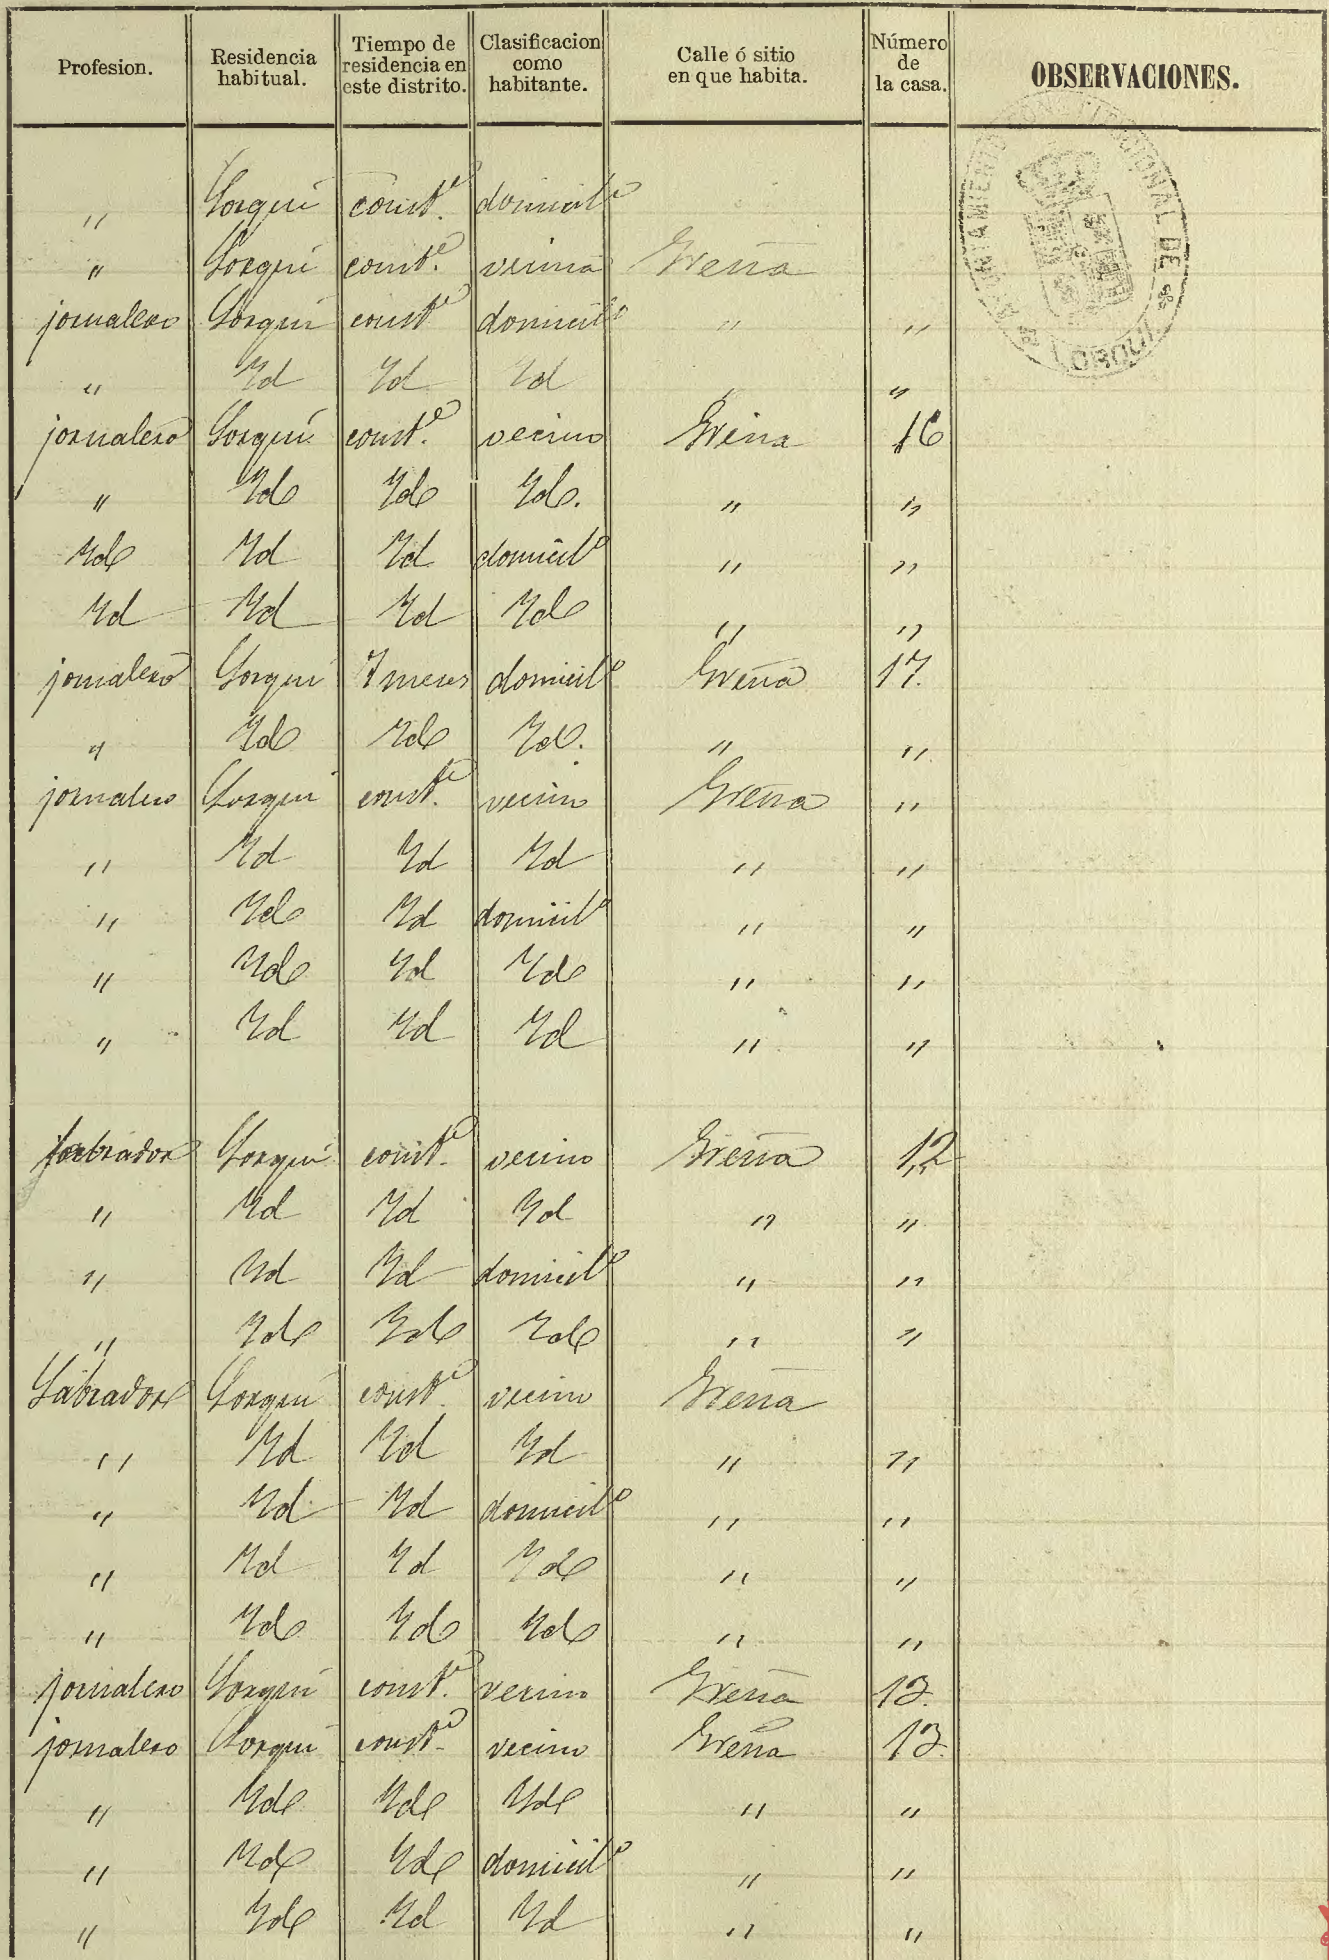 Profesion. Residencia habitual. Tiempo de residencia en este distrito. Clasificacion como habitante. Calle ó sitio en que habita. Número de la casa. OBSERVACIONES.
AYUNTAMIENTO CONSTITUCIONAL DE * LORQUI *
" Lorquí const.e domicil.o
" Lorquí const.e vecina Greña
jornalero Lorquí const.e domicil.o " "
" Yd Yd Yd " "
jornalero Lorquí const.e vecino Greña 16
" Yd Yd Yd. " "
Yd Yd Yd domicil.o " "
Yd Yd Yd Yd " "
jornalero Lorquí 7 meses domicil.o Greña 17.
" Yd Yd Yd. " "
jornalero Lorquí const.e vecino Greña "
" Yd Yd Yd " "
" Yd Yd domicil.o " "
" Yd Yd Yd " "
" Yd Yd Yd " "
labrador Lorquí const.e vecino Greña 12
" Yd Yd Yd " "
" Yd Yd domicil.o " "
" Yd Yd Yd " "
Labrador Lorquí const.e vecino Greña
" Yd Yd Yd " "
" Yd Yd domicil.o " "
" Yd Yd Yd " "
" Yd Yd Yd " "
jornalero Lorquí const.e vecino Greña 13.
jornalero Lorquí const.e vecino Greña 13.
" Yd Yd Yd " "
" Yd Yd domicil.o " "
" Yd Yd Yd " "